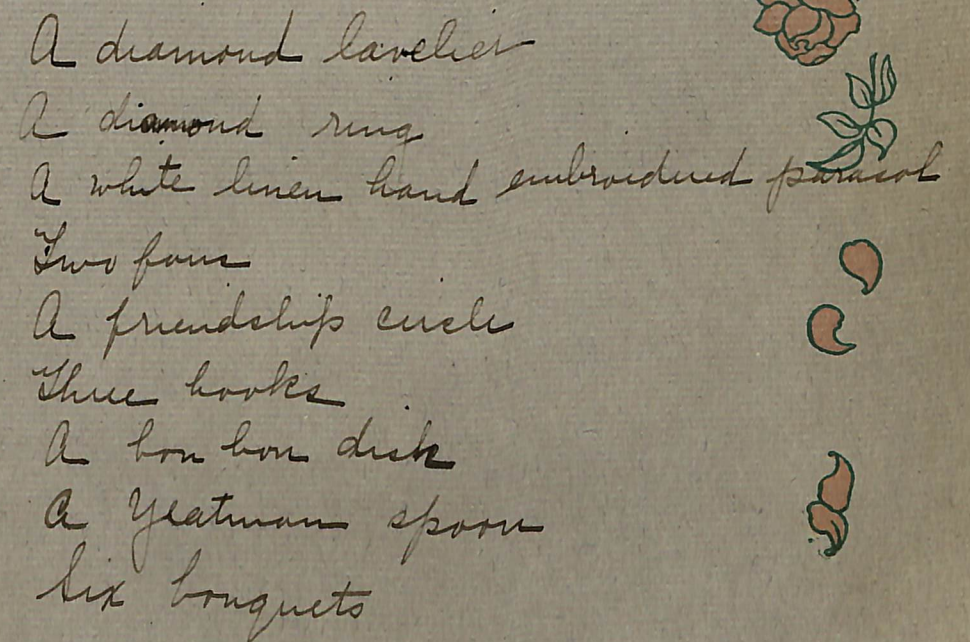 A diamond lavelier
A diamond ring
A white linen hand embroidered parasol
Two fans
A friendship circle
Three books
A bon bon dish
A Yeatman spoon
Six bouquets